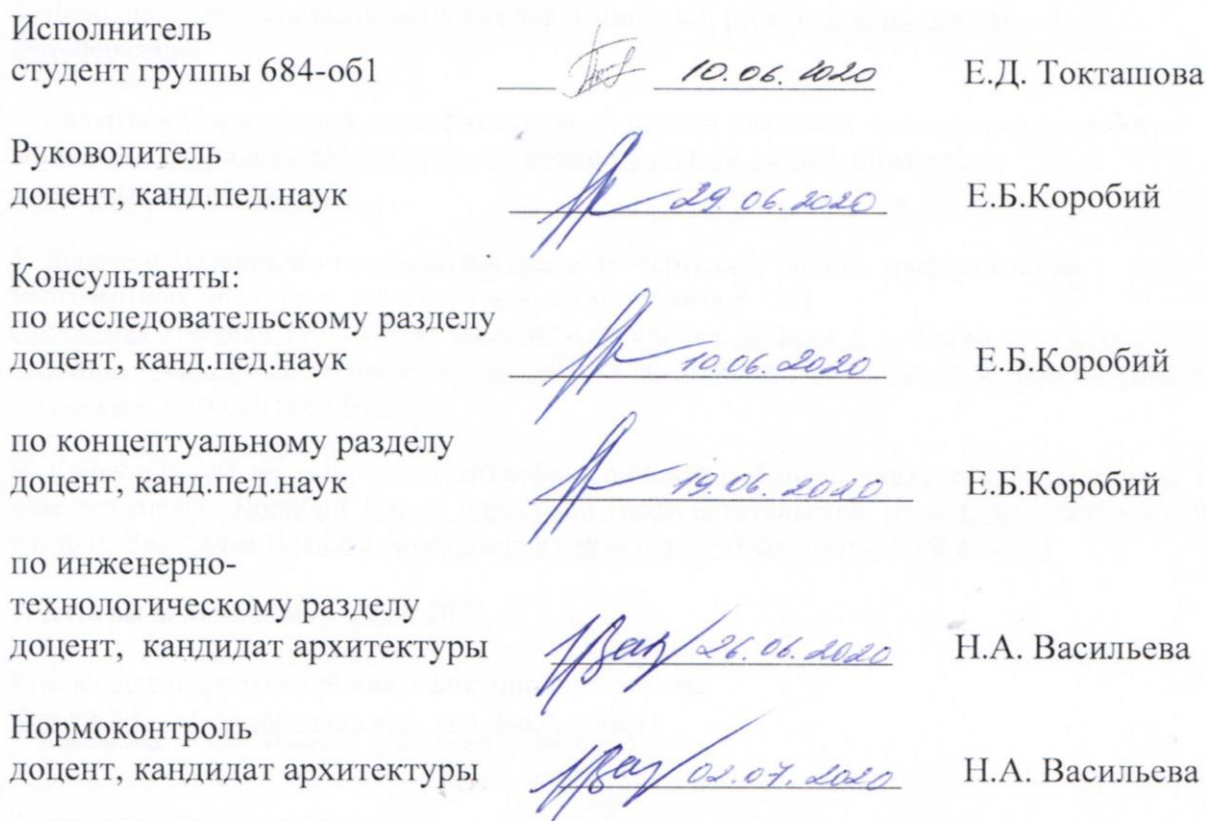 Исполнитель
студент группы 684-об1 10.06.2020 Е.Д. Токташова
Руководитель
доцент, канд.пед.наук 29.06.2020 Е.Б.Коробий
Консультанты:
по исследовательскому разделу
доцент, канд.пед.наук 10.06.2020 Е.Б.Коробий
по концептуальному разделу
доцент, канд.пед.наук 19.06.2020 Е.Б.Коробий
по инженерно-
технологическому разделу
доцент, кандидат архитектуры 26.06.2020 Н.А. Васильева
Нормоконтроль
доцент, кандидат архитектуры 02.07.2020 Н.А. Васильева